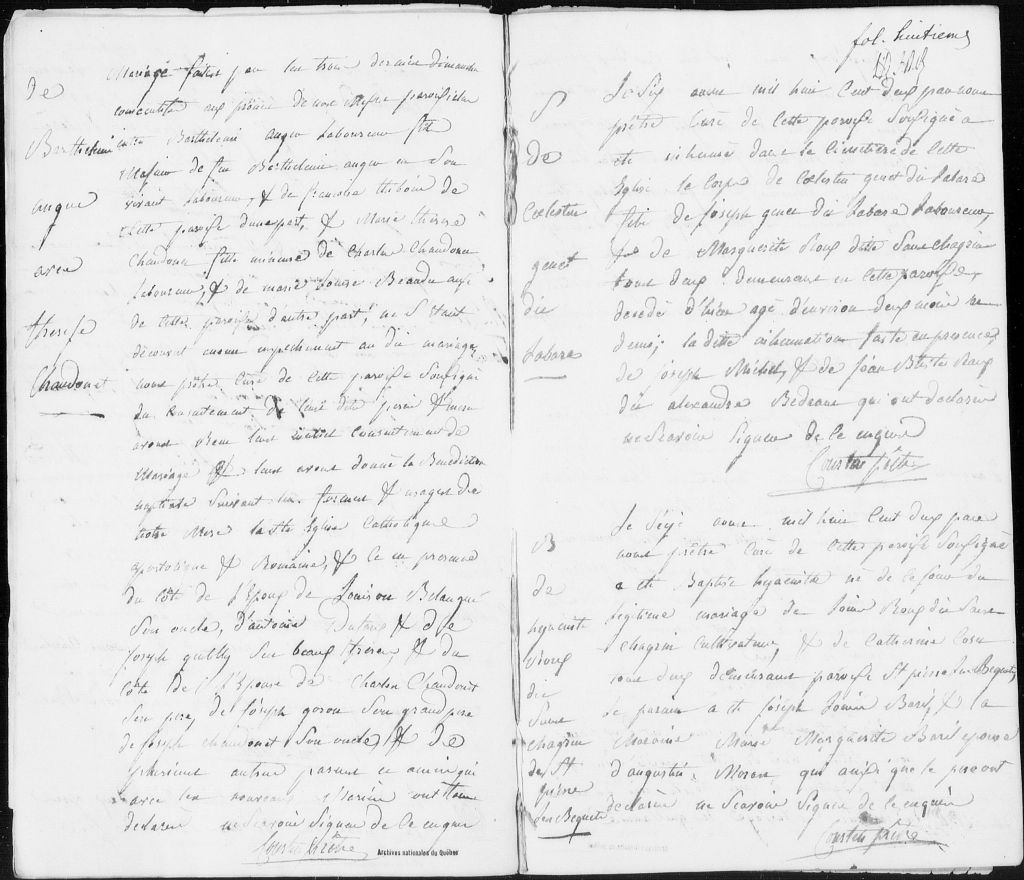 De
Barthelemi
auger
avec
therese
Chaudonet
Mariage faites par les trois derniers dimanches
consecutifs aux prône de nos Messe paroissiales
entre Barthelemi auger Laboureur fils
Majeur de feu Barthelemi auger en son
vivant Laboureur, & de francoise de
Cette paroisse d'une part, & Marie therese
Chaudonet fille mineure de Charles Chaudonet
Laboureur, & de marie Louise Beaudet aussi
de Cette paroisse d'autre part, ne S'étant
découvert aucun empechement au dit mariage
nous prêtre Curé de Cette paroisse Soussigné
du Consentement de leurs dits pere & mere
avons Reçu leur mutuel consentement de
Mariage & leur avons donné la Benediction
nuptiale Suivant les formes & usages de
notre Mere la Ste Eglise Catholique
apostolique & Romaine, & ce en presence
du Côté de l'Epoux de Louison Belangé
Son oncle, d'antoine & de
Joseph Son beaux frere, & du
Côté de l'Epouse de Charles Chaudonet
Son pere, de Joseph Son grand pere
de Joseph chaudonet Son oncle, & de
plusieurs autres parens et amis qui
avec les nouveaux Mariés ont tous
declarer ne Scavoir Signer de Ce enquer
Courtin prêtre
Archives nationales du Québec
fol. huitieme
S
De
Celestin
genet
dit
Labare
Le Six avril mil huit Cent deux par nous
prêtre Curé de Cette paroisse Soussigné a
eté inhumé dans le Cimetiere de Cette
Eglise le Corps de Celestin genet dit Labare
fils de Joseph genet dit Labare Laboureur,
& de Marguerite Roux dite Sanschagrin
tous deux demeurans en Cette paroisse,
decedé d'hier agé d'environ deux mois &
demi; la dite inhumation faite en presence
de Joseph Michel, & de Jean Btiste Raux
dit alexandre Bedeaux qui ont declarer
ne Scavoir Signer de Ce enquer
Courtin prêtre
B
de
hyaciente
Roux
dit
Sans
chagrin
de St
pierre
Les Bequets
Le Séize avril mil huit Cent deux par
nous prêtre Curé de Cette paroisse Soussigné
a eté Baptisé hyacinthe né de Ce jour du
legitime mariage de Louis Roux dit Sans
chagrin Cultivateur, & de Catherine
tous deux demeurans paroisse St pierre Les Bequets
le parain a eté Joseph Louis Baril, & la
Maraine Marie Marguerite Baril epouse
d'augustin Moran, qui ainsi que le pere ont
declarer ne Scavoir Signer de Ce enquer
Courtin prêtre